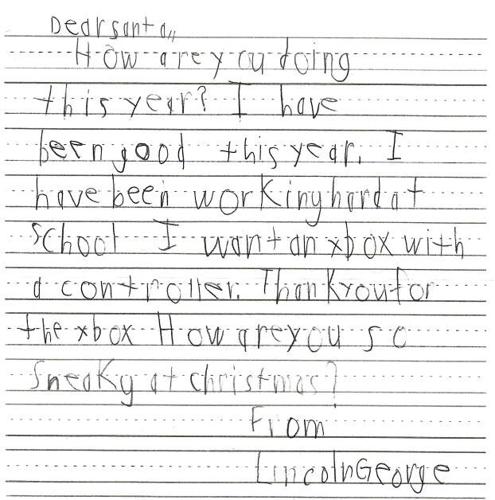 Dear santa,,
How are you doing
this year? I have
been good this year. I
have been working hard at
school I want an xbox with
a controller. Thank you for
the xbox How are you so
Sneaky at christmas?
From
Lincoln George